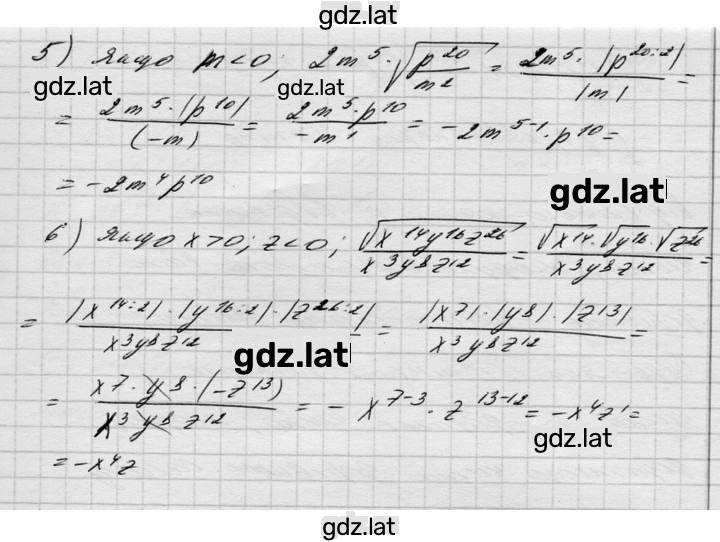 gdz.lat
5) Якщо m<0; 2m⁵·√(p²⁰/m²) = 2m⁵·|p²⁰:²|/|m| =
gdz.lat gdz.lat
= 2m⁵·|p¹⁰|/(-m) = 2m⁵·p¹⁰/-m¹ = -2m⁵⁻¹·p¹⁰ =
= -2m⁴p¹⁰
gdz.lat
6) Якщо x>0; z<0; √(x¹⁴y¹⁶z²⁶)/x³y⁸z¹² = √x¹⁴·√y¹⁶·√z²⁶/x³y⁸z¹² =
= |x¹⁴:²|·|y¹⁶:²|·|z²⁶:²|/x³y⁸z¹² = |x⁷|·|y⁸|·|z¹³|/x³y⁸z¹² =
gdz.lat
= x⁷·y⁸·(-z¹³)/x³y⁸z¹² = -x⁷⁻³·z¹³⁻¹² = -x⁴z¹ =
gdz.lat
= -x⁴z
gdz.lat